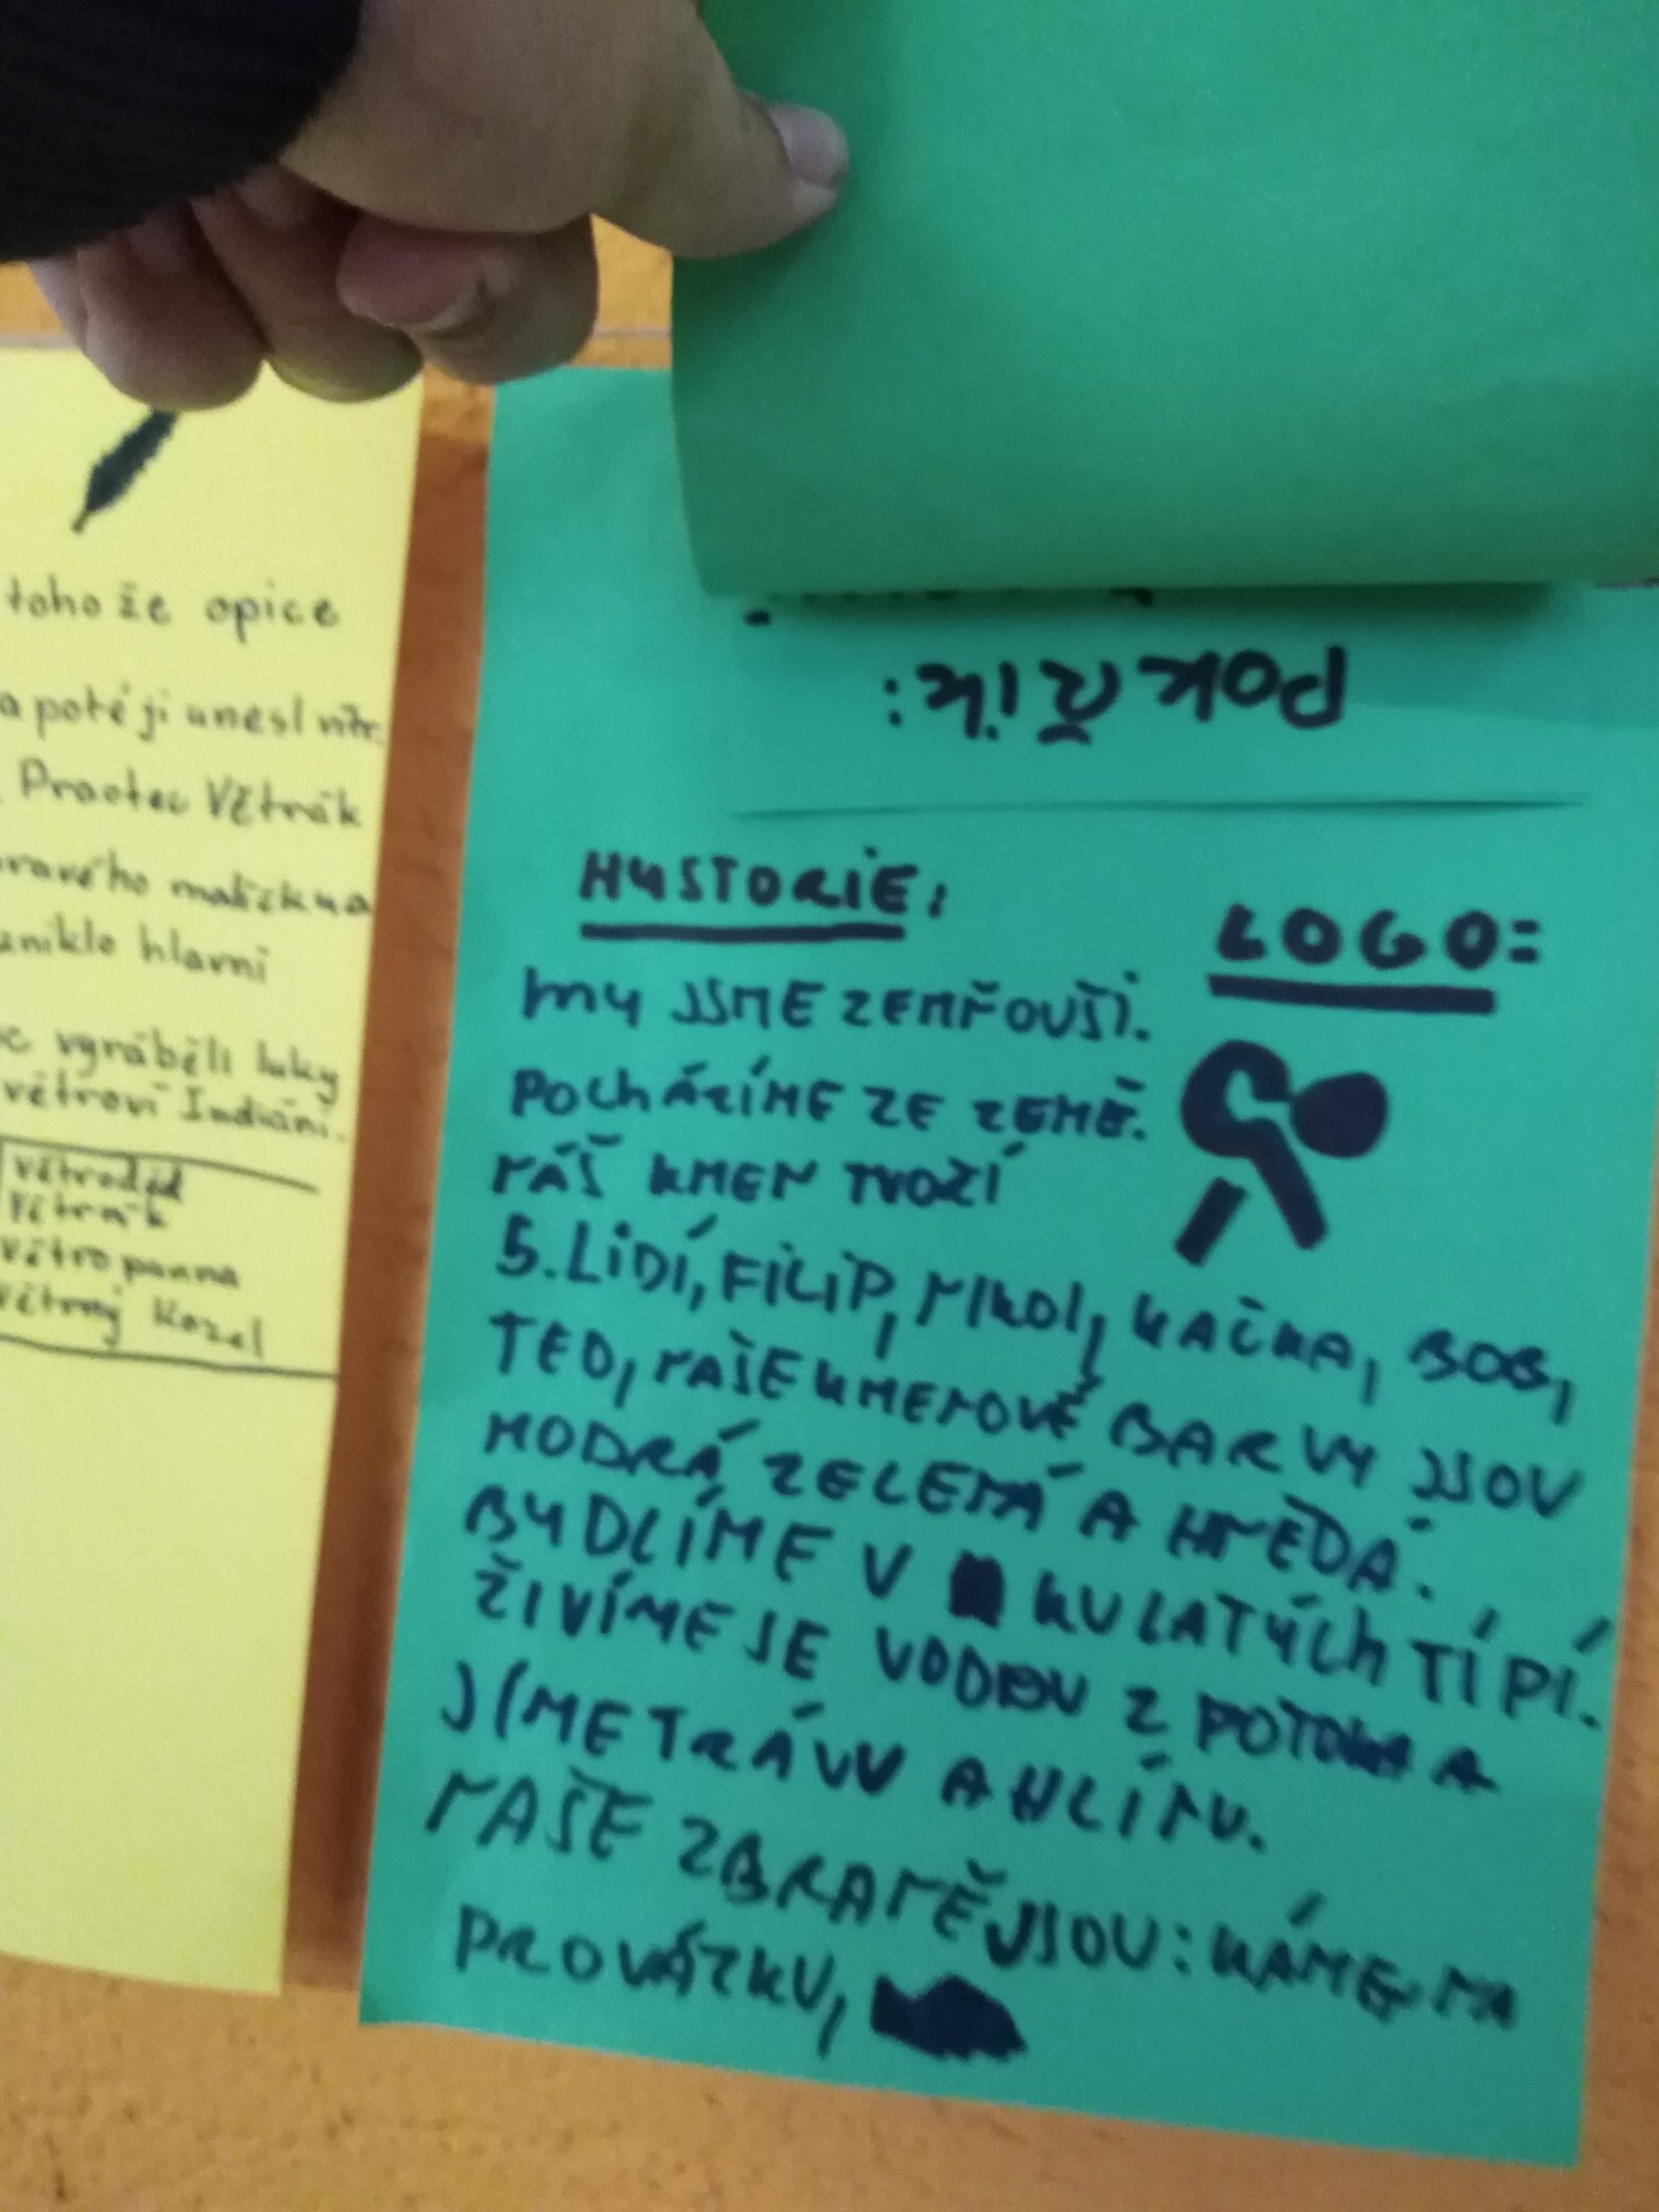 toho že opice
a poté ji unesl vítr.
Praotec Větrák
zniklo hlavní
vyráběli luky
větroví Indiáni.
Větroděd
Větrák
Větropanna
Větrný Kozel
POKŘik:
HYSTORIE:
LOGO:
MY JSME ZEMŇOUŠI.
POCHÁZÍME ZE ZEMĚ.
NÁŠ KMEN TVOŽÍ
5. LIDÍ, FILIP, NIKOL, KAČKA, BOB,
TED, NAŠE KMENOVÉ BARVY JSOU
MODRÁ ZELENÁ A HNĚDÁ.
BYDLÍME V KULATÝCH TÍPÍ.
ŽIVÍME SE VODOU Z POTOKA A
JÍME TRÁVU A HLÍNU.
NAŠE ZBRANĚ JSOU: KÁMEN NA
PROVÁZKU,